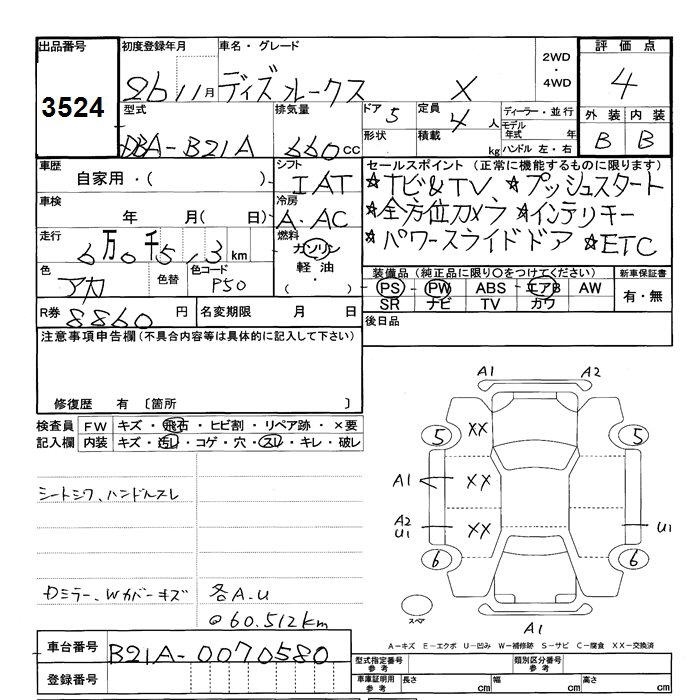 出品番号
3524
初度登録年月
26 11月
車名・グレード
ディズルークス X
2WD
・
4WD
評価点
4
外装 内装
B B
型式
DBA-B21A
排気量
660cc
ドア 5
形状
定員 4人
積載 kg
ディーラー・並行
モデル年式 年
ハンドル 左・右
車歴
自家用・( )
シフト
IAT
車検
年 月( 日)
冷房
A.AC
走行
6万0千513km
燃料
ガソリン
軽油
( ・ )
色
アカ
色替
色コード
P50
R券 8860円
名変期限 月 日
セールスポイント(正常に機能するものに限ります)
☆ナビ&TV ☆プッシュスタート
☆全方位カメラ ☆インテリキー
☆パワースライドドア ☆ETC
装備品(純正品に限り○をつけてください)
PS PW ABS エアB AW
SR ナビ TV カワ
新車保証書
有・無
後日品
注意事項申告欄(不具合内容等は具体的に記入して下さい)
修復歴 有 〔箇所 〕
検査員記入欄
FW キズ・飛石・ヒビ割・リペア跡・×要
内装 キズ・汚レ・コゲ・穴・スレ・キレ・破レ
シートシワ、ハンドルスレ
Dミラー、Wカバーキズ
各A.U
@60.512km
A1 A2
5 XX 5
A1 XX
A2
U1 XX U1
6 6
スペア
A1
A-キズ E-エクボ U-凹み W-補修跡 S-サビ C-腐食 XX-交換済
車台番号
B21A-0070580
登録番号
型式指定番号
参考
類別区分番号
参考
車庫証明用
参考
長さ cm 幅 cm 高さ cm